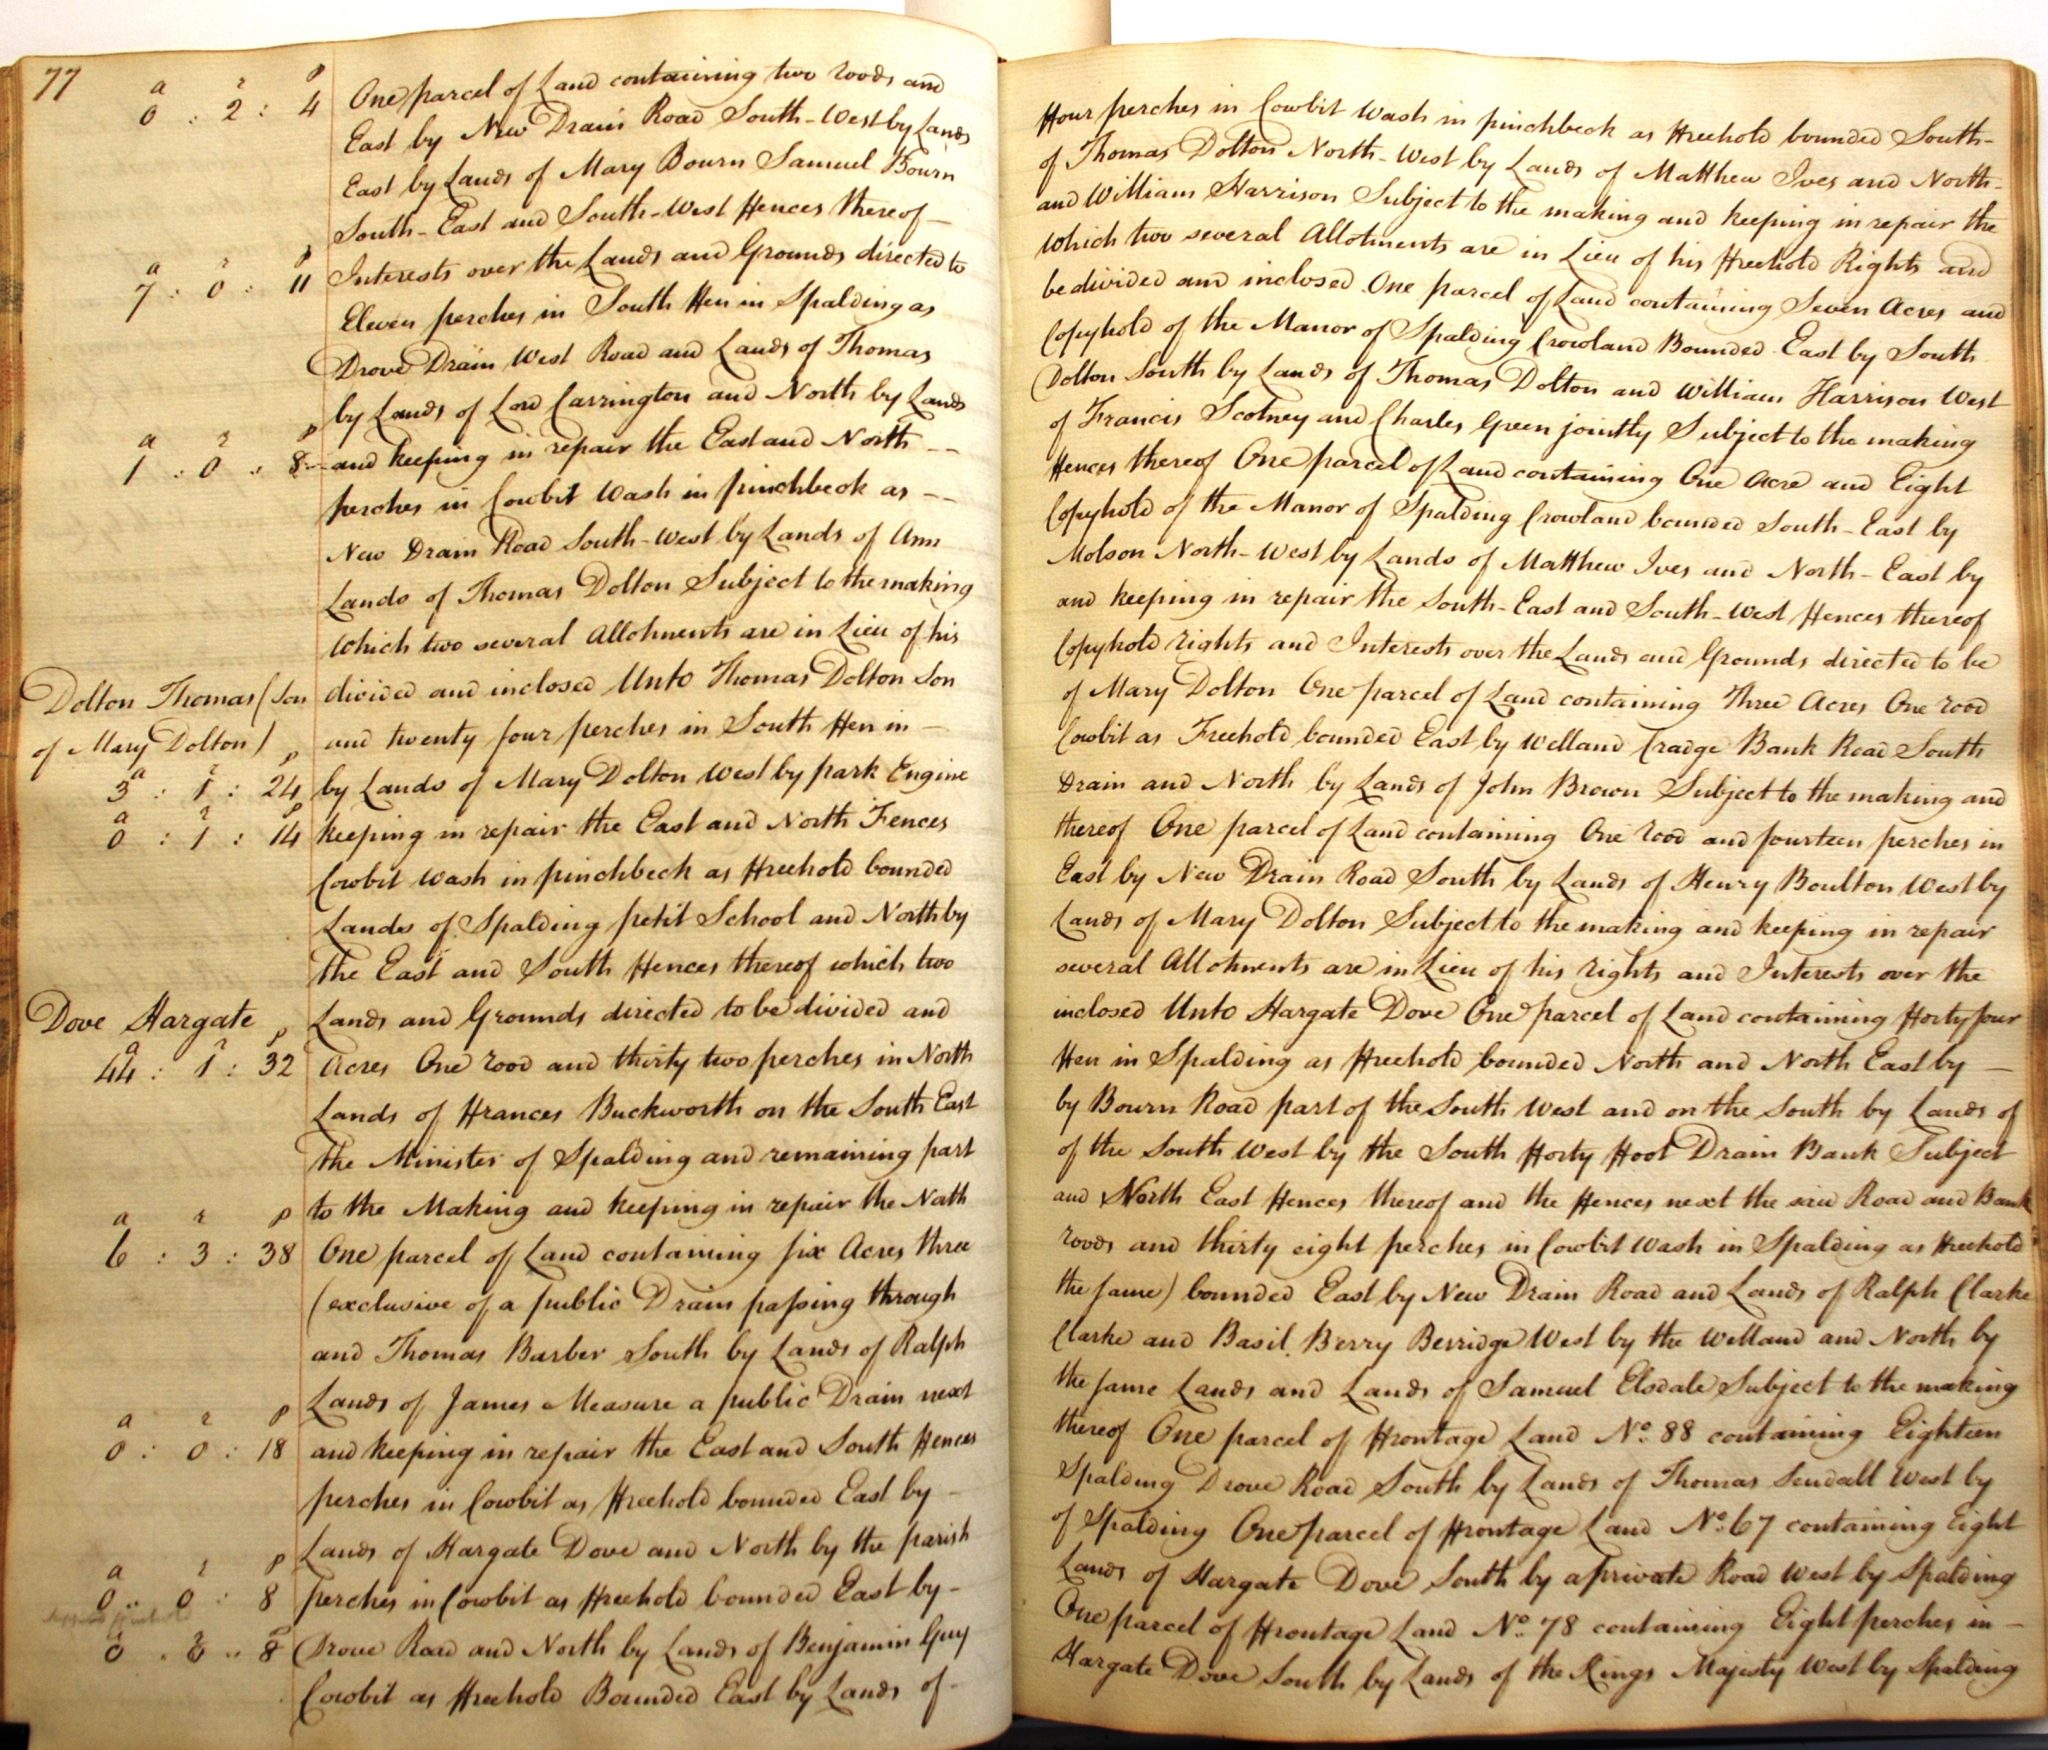 77
a r p
0 : 2 : 4
One parcel of Land containing two roods and
Four perches in Cowbit Wash in pinchbeck as Freehold bounded South-
East by New Drain Road South-West by Lands
of Thomas Dolton North-West by Lands of Matthew Ives and North-
East by Lands of Mary Bourn Samuel Bourn
and William Harrison Subject to the making and keeping in repair the
South-East and South-West Fences thereof -
Which two several Allotments are in Lieu of his Freehold Rights and
a r p
7 : 0 : 11
Interests over the Lands and Grounds directed to
be divided and inclosed One parcel of Land containing Seven Acres and
Eleven perches in South Fen in Spalding as
Copyhold of the Manor of Spalding Crowland Bounded East by South
Drove Drain West Road and Lands of Thomas
Dolton South by Lands of Thomas Dolton and William Harrison West
by Lands of Lord Carrington and North by Lands
of Francis Scotney and Charles Green jointly Subject to the making
a r p
1 : 0 : 8
and keeping in repair the East and North --
Fences thereof One parcel of Land containing One Acre and Eight
perches in Cowbit Wash in pinchbeck as --
Copyhold of the Manor of Spalding Crowland bounded South-East by
New Drain Road South-West by Lands of Ann
Molson North-West by Lands of Matthew Ives and North-East by
Lands of Thomas Dolton Subject to the making
and keeping in repair the South-East and South-West Fences thereof
Which two several Allotments are in Lieu of his
Copyhold rights and Interests over the Lands and Grounds directed to be
Dolton Thomas (Son
of Mary Dolton)
divided and inclosed Unto Thomas Dolton Son
of Mary Dolton One parcel of Land containing Three Acres One rood
and twenty four perches in South Fen in -
Cowbit as Freehold bounded East by Welland Cradge Bank Road South
a r p
3 : 1 : 24
by Lands of Mary Dolton West by park Engine
Drain and North by Lands of John Brown Subject to the making and
a r p
0 : 1 : 14
keeping in repair the East and North Fences
thereof One parcel of Land containing One rood and fourteen perches in
Cowbit Wash in pinchbeck as Freehold bounded
East by New Drain Road South by Lands of Henry Boulton West by
Lands of Spalding petit School and North by
Lands of Mary Dolton Subject to the making and keeping in repair
the East and South Fences thereof which two
several Allotments are in Lieu of his rights and Interests over the
Dove Hargate
Lands and Grounds directed to be divided and
inclosed Unto Hargate Dove One parcel of Land containing Forty four
a r p
44 : 1 : 32
Acres One rood and thirty two perches in North
Fen in Spalding as Freehold bounded North and North East by -
Lands of Frances Buckworth on the South East
by Bourn Road part of the South West and on the South by Lands of
the Minister of Spalding and remaining part
of the South West by the South Forty Foot Drain Bank Subject
to the Making and keeping in repair the Noth
and North East Fences thereof and the Fences next the said Road and Bank
a r p
6 : 3 : 38
One parcel of Land containing six Acres three
roods and thirty eight perches in Cowbit Wash in Spalding as Freehold
(exclusive of a public Drain passing through
the same) bounded East by New Drain Road and Lands of Ralph Clarke
and Thomas Barber South by Lands of Ralph
Clarke and Basil Berry Berridge West by the Welland and North by
Lands of James Measure a public Drain next
the same Lands and Lands of Samuel Elsdale Subject to the making
a r p
0 : 0 : 18
and keeping in repair the East and South Fences
thereof One parcel of Frontage Land No. 88 containing Eighteen
perches in Cowbit as Freehold bounded East by -
Spalding Drove Road South by Lands of Thomas Sendall West by
Lands of Hargate Dove and North by the parish
of Spalding One parcel of Frontage Land No. 67 containing Eight
a r p
0 : 0 : 8
perches in Cowbit as Freehold bounded East by -
Lands of Hargate Dove South by a private Road West by Spalding
0 : 0 : 8
Drove Road and North by Lands of Benjamin Guy
One parcel of Frontage Land No. 78 containing Eight perches in -
Cowbit as Freehold Bounded East by Lands of -
Hargate Dove South by Lands of the Kings Majesty West by Spalding